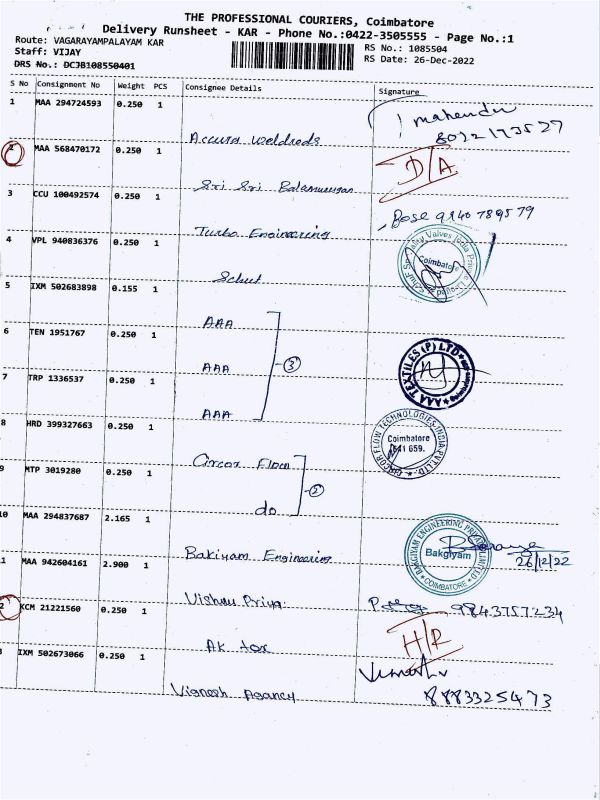 THE PROFESSIONAL COURIERS, Coimbatore
Delivery Runsheet - KAR - Phone No.:0422-3505555 - Page No.:1
Route: VAGARAYAMPALAYAM KAR
RS No.: 1085504
Staff: VIJAY
RS Date: 26-Dec-2022
DRS No.: DCJB108550401
S No Consignment No Weight PCS Consignee Details Signature
1 MAA 294724593 0.250 1 Accura weldreds mahendu
2 MAA 568470172 0.250 1 Sri Sri Balamurugan D/A
3 CCU 100492574 0.250 1 Turbo Engineering Bose 9140789579
4 VPL 940836376 0.250 1 Schut Coimbatore
5 IXM 502683898 0.155 1 AAA
6 TEN 1951767 0.250 1 AAA ③ AAA TEXTILES (P) LTD
7 TRP 1336537 0.250 1 AAA
8 HRD 399327663 0.250 1 Circor Flow CIRCOR FLOW TECHNOLOGIES INDIA PVT. LTD. Coimbatore 641 659.
9 MTP 3019280 0.250 1 do ②
10 MAA 294837687 2.165 1 Bakiyam Engineering BAKGIYAM ENGINEERING PRIVATE LIMITED Bakgiyam COIMBATORE 26/12/22
1 MAA 942604161 2.900 1 Vishnu Priya 9843757234
2 KCM 21221560 0.250 1 AK tex H/R
IXM 502673066 0.250 1 Vignesh Agancy 8883325473